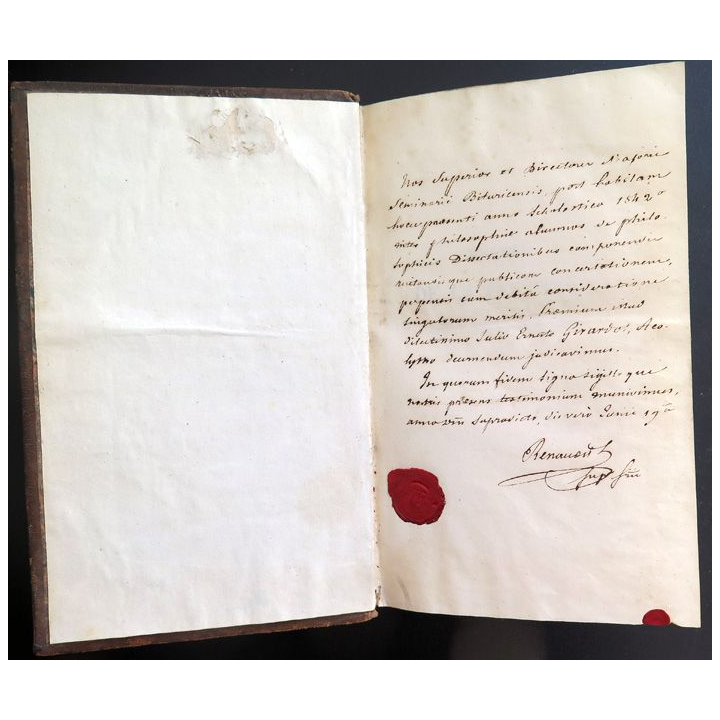 Nos Superior et Directores Majoris
Seminarii Bituricensis, post habitam
hocce præsenti anno Scholastico 1842o
inter philosophiæ alumnos de philo
sophicis Dissertationibus componendis
recitandisque publicam concertationem,
perpensis cum debitâ consideratione
singulorum meritis, Præmium istud
dilectissimo Julio Ernesto Girardot, Aco
lytho decernendum judicavimus.
In quorum fidem signo sigilloque
nostris præsens testimonium munivimus,
anno supradicto, die verò Junii 19a
Renaudet
sup. Srii